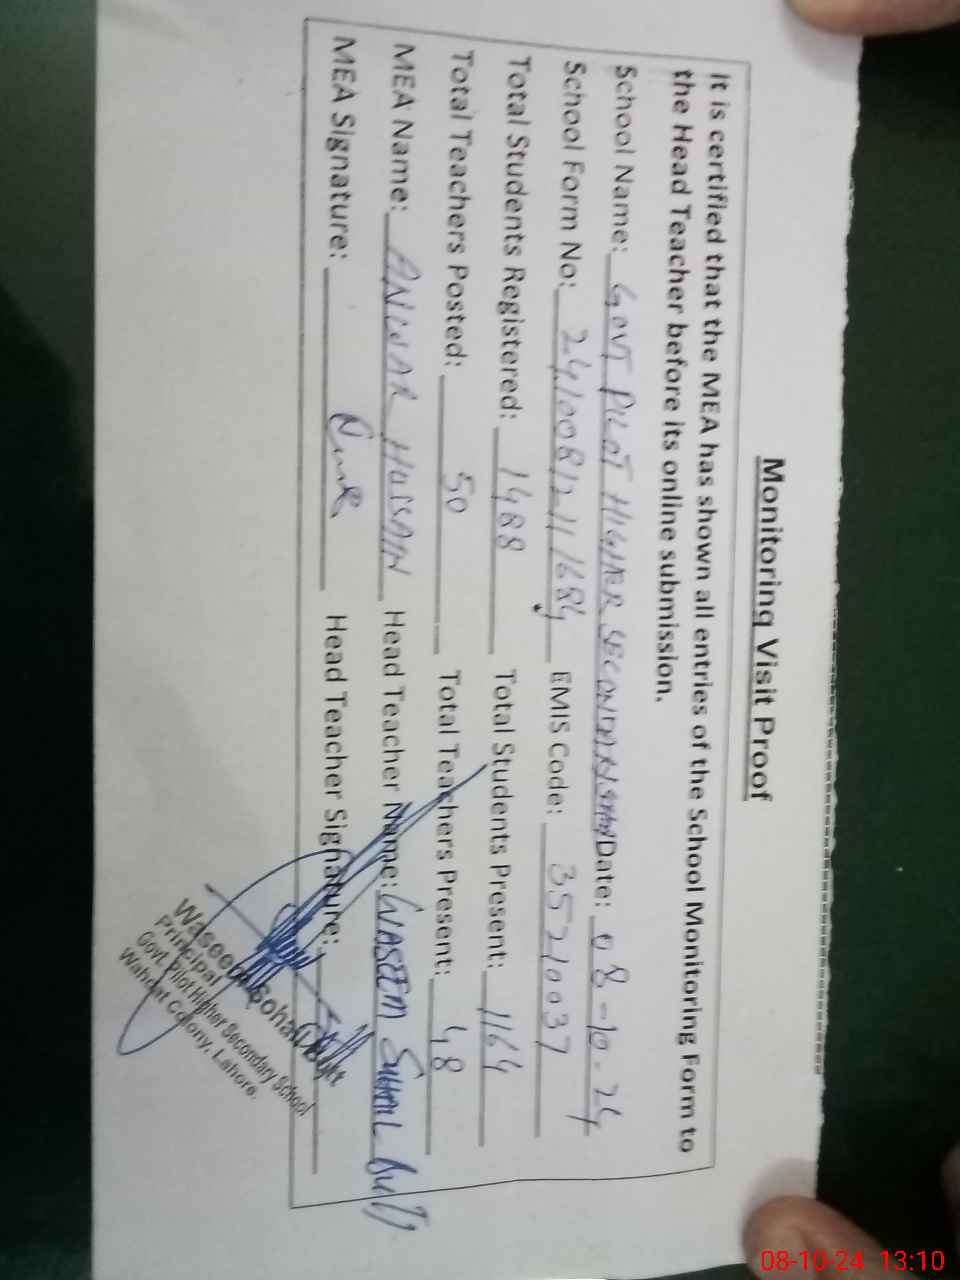 Monitoring Visit Proof
It is certified that the MEA has shown all entries of the School Monitoring Form to
the Head Teacher before its online submission.
School Name: GOVT PILOT HIGHER SECONDARY Date: 08-10-24
School Form No: EMIS Code: 35210037
Total Students Registered: 1488 Total Students Present: 1164
Total Teachers Posted: 50 Total Teachers Present: 48
MEA Name: ANWAR HUSSAIN Head Teacher Name: WASEEM SOHAIL BUTT
MEA Signature: Head Teacher Signature:
Waseem Sohail Butt
Principal
Govt. Pilot Higher Secondary School
Wahdat Colony, Lahore.
08-10-24 13:10